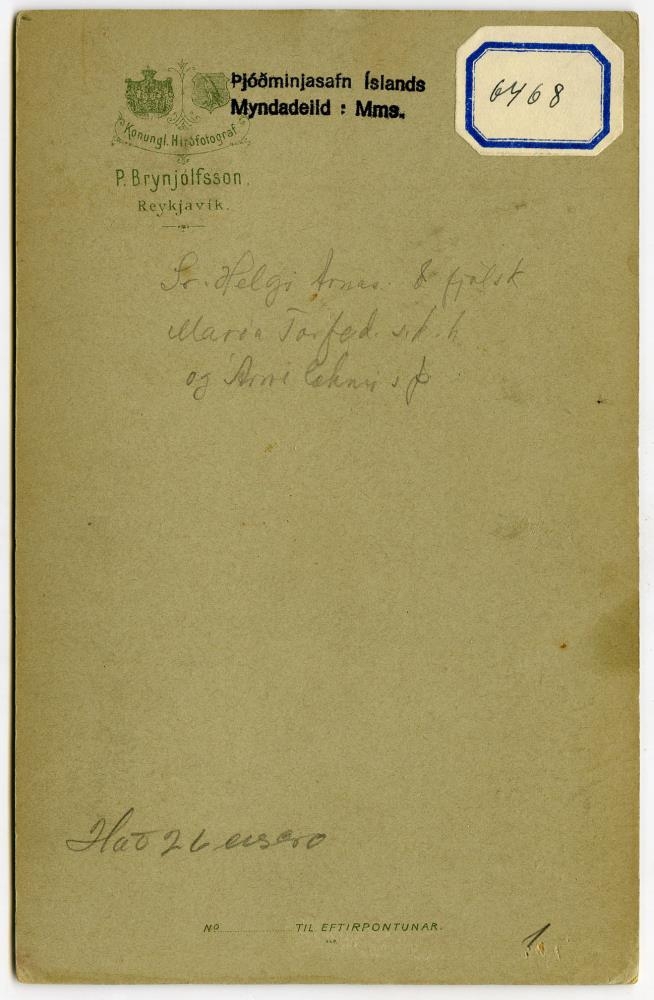 Þjóðminjasafn Íslands
Myndadeild : Mms.
6468
Konungl. Hirðfotograf
P. Brynjólfsson.
Reykjavik.
Sr. Helgi Árnas. & fjölsk
María Torfad. s. k. h
og Árni
Nº TIL EFTIRPONTUNAR.
1